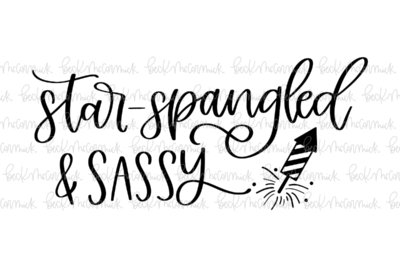 star-spangled
& SASSY